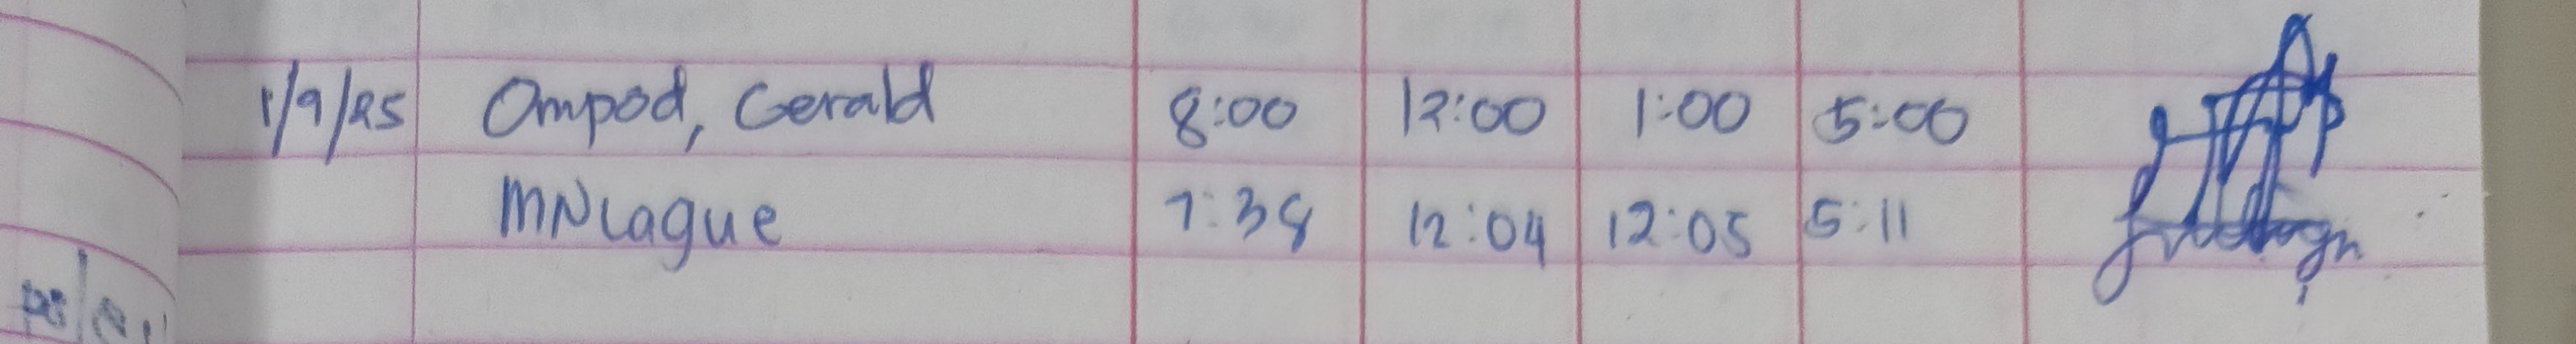 1/9/25 Ompod, Gerald 8:00 12:00 1:00 5:00
MNLague 7:38 12:04 12:05 5:11